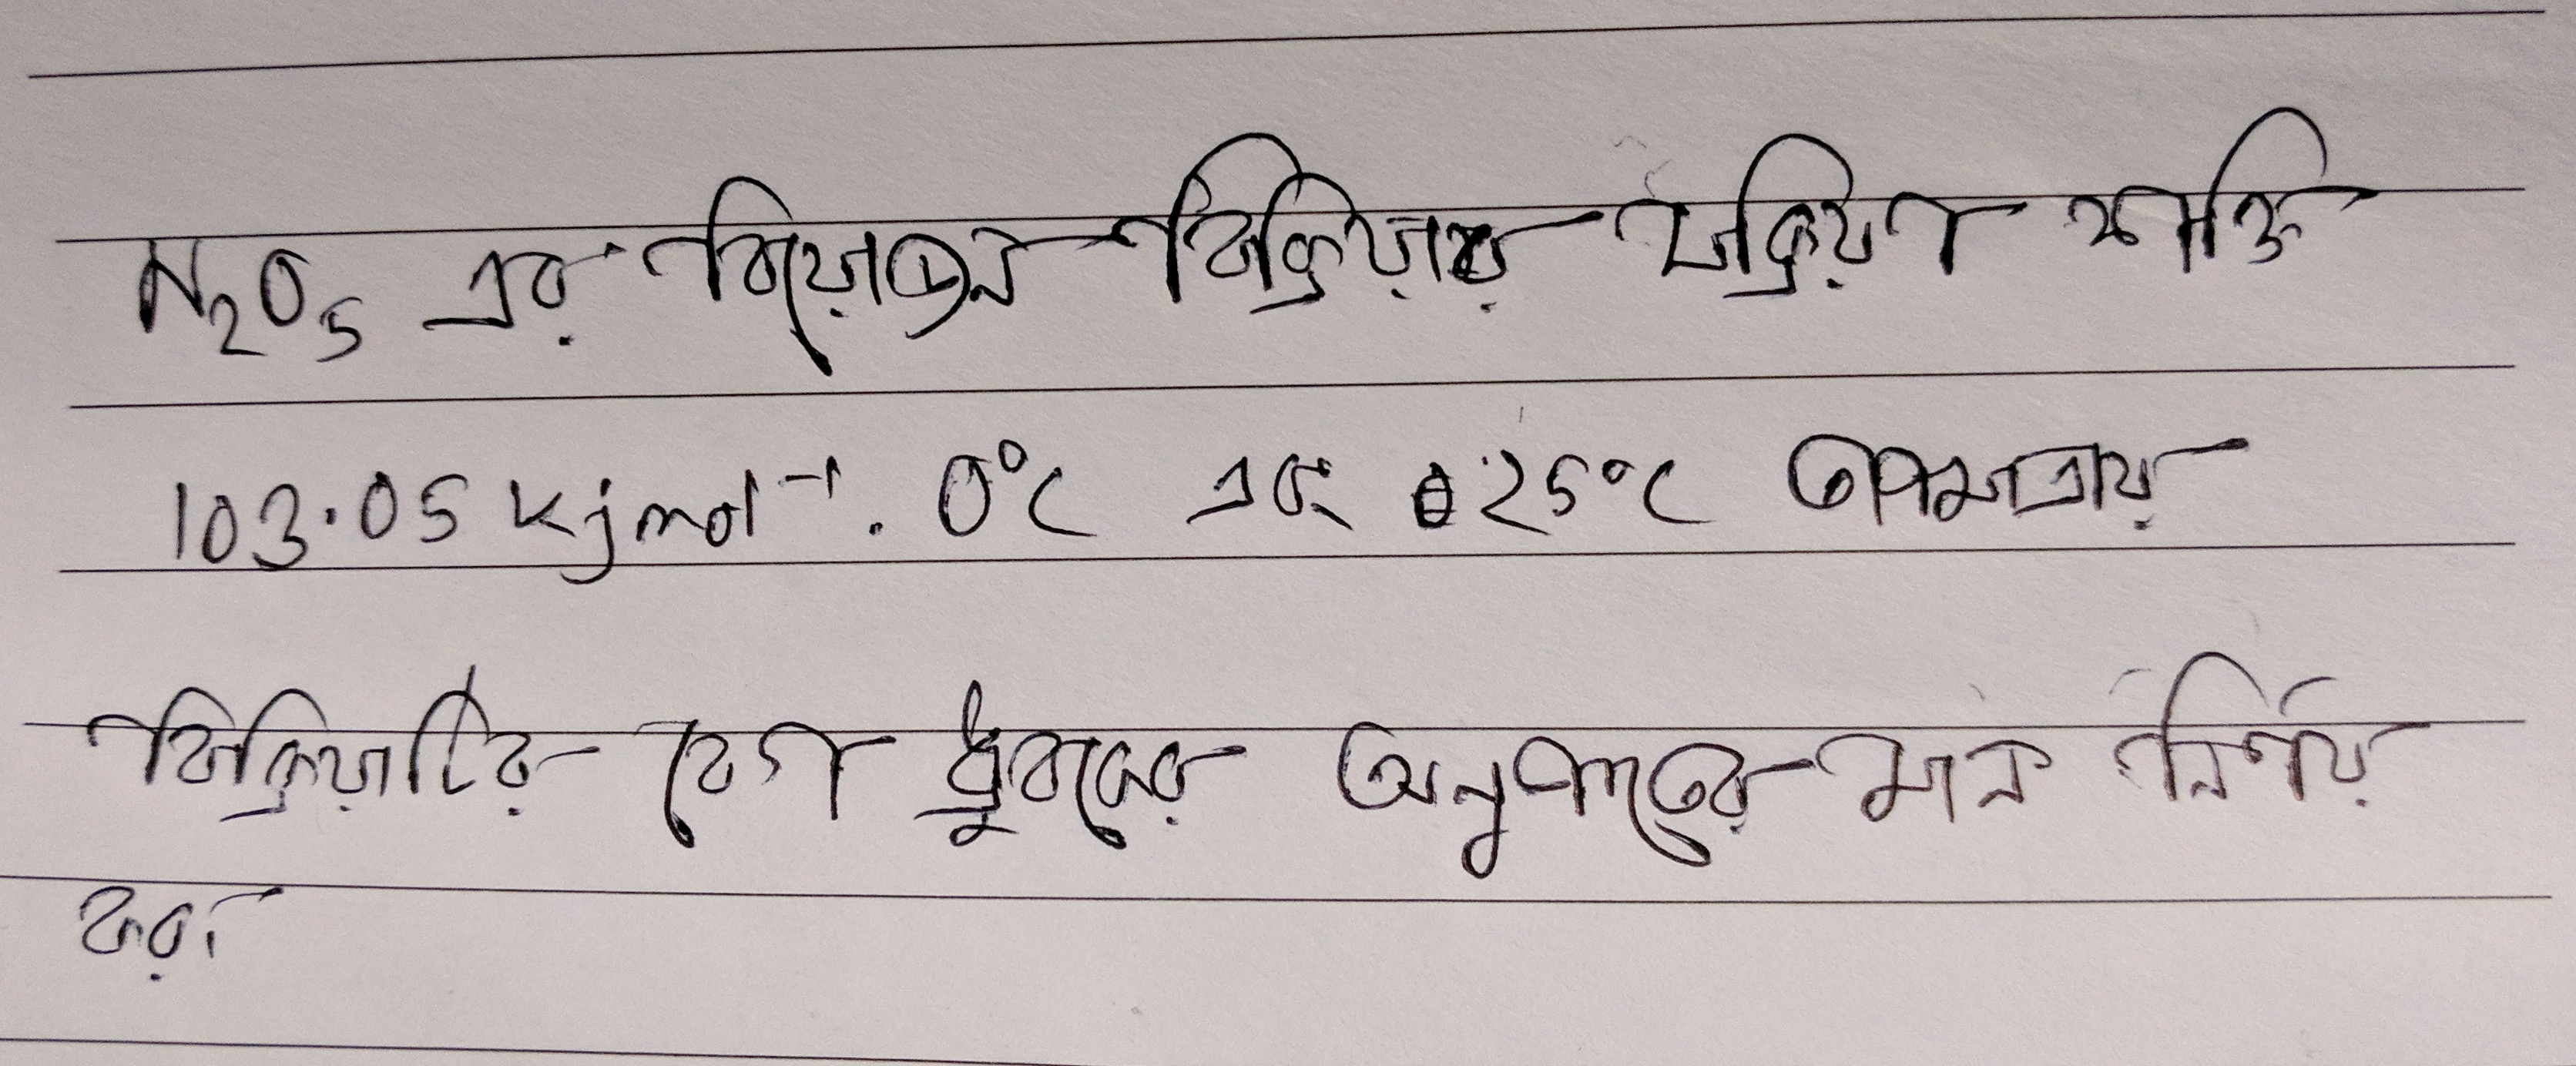 N₂O₅ এর বিয়োজন বিক্রিয়ার সক্রিয়ণ শক্তি
103.05 kjmol⁻¹. 0°C এবং 25°C তাপমাত্রায়
বিক্রিয়াটির বেগ ধ্রুবকের অনুপাতের মান নির্ণয়
কর।